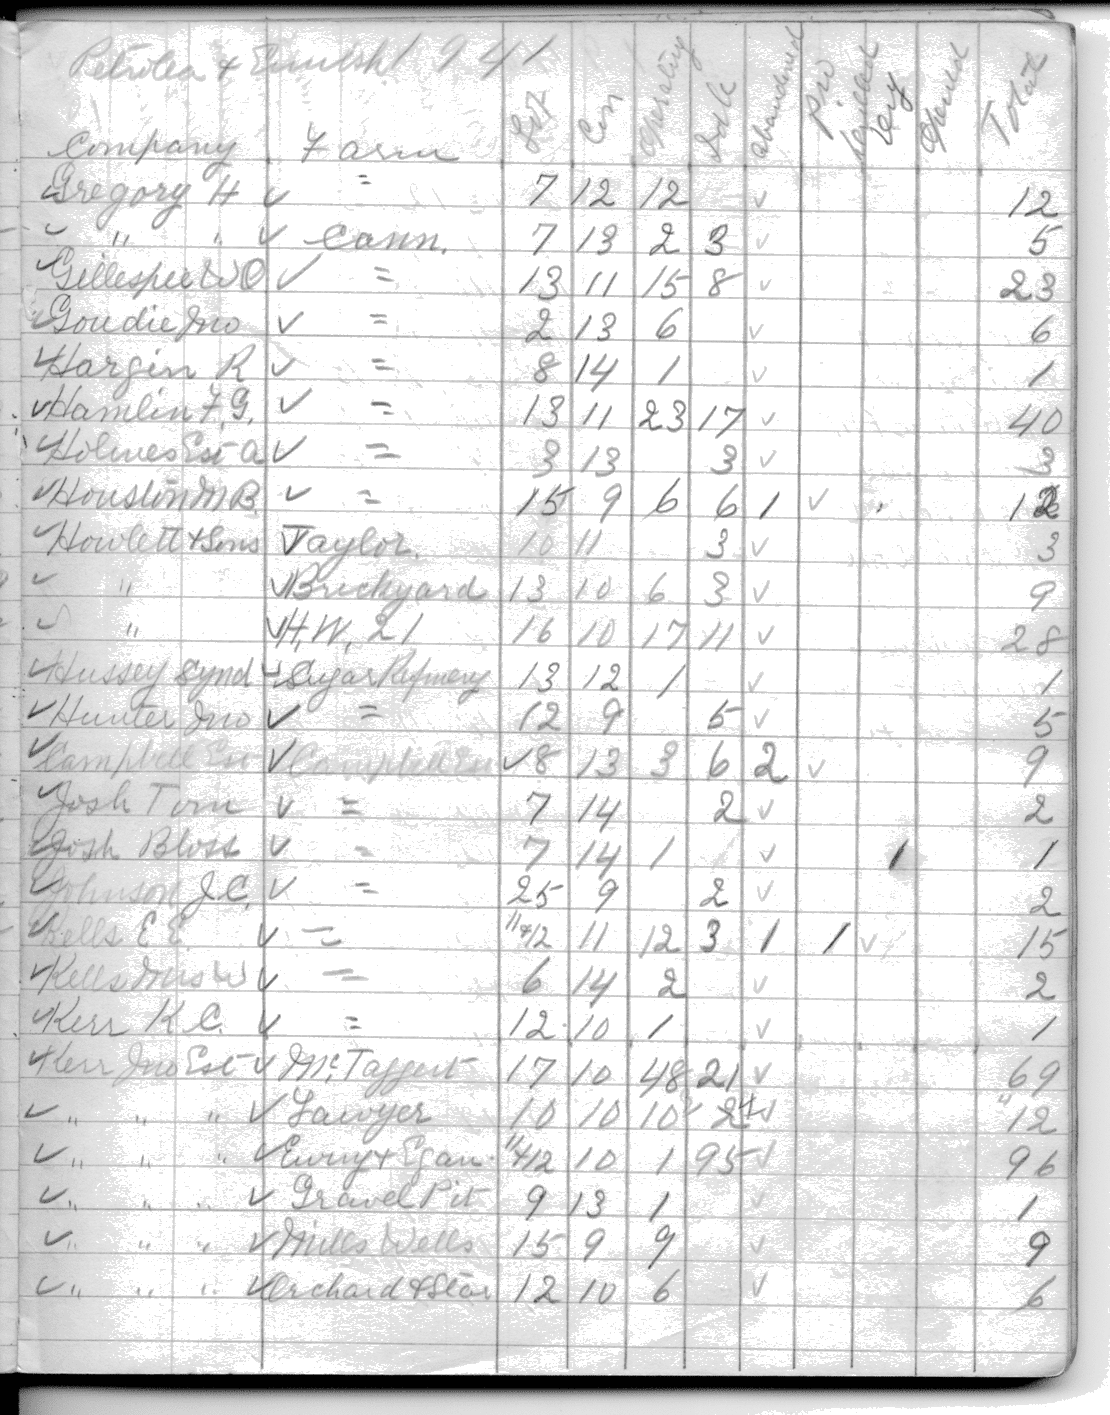 Petrolea & Ennisk 1941
Company Farm Lot Con Operating Idle abandoned Dry Opened Total
Gregory H ✓ = 7 12 12 ✓ 12
✓ " " ✓ Conn. 7 13 2 3 ✓ 5
✓ Gillespie W O ✓ = 13 11 15 8 ✓ 23
✓ Goudie Jno ✓ = 2 13 6 ✓ 6
✓ Hargin R ✓ = 8 14 1 ✓ 1
✓ Hamlin F. G. ✓ = 13 11 23 17 ✓ 40
✓ Holmes Est a ✓ = 3 13 3 ✓ 3
✓ Houston M B. ✓ = 15 9 6 6 1 ✓ 12
✓ Howlett & Sons Taylor. 10 11 3 ✓ 3
✓ " ✓ Brickyard 13 10 6 3 ✓ 9
✓ " ✓ H. W. 21 16 10 17 11 ✓ 28
✓ Hussey Synd ✓ Sugar Refinery 13 12 1 ✓ 1
✓ Hunter Jno ✓ = 12 9 5 ✓ 5
✓ Campbell Est ✓ Campbell Est ✓ 8 13 3 6 2 ✓ 9
✓ Josh Tom ✓ = 7 14 2 ✓ 2
✓ Josh Bloss ✓ = 7 14 1 ✓ 1 1
✓ Johnson J. C. ✓ = 25 9 2 ✓ 2
✓ Kells E E. ✓ = 11+12 11 12 3 1 1 ✓ 15
✓ Kells Mrs W ✓ = 6 14 2 ✓ 2
✓ Kerr K. C. ✓ = 12 10 1 ✓ 1
✓ Kerr Jno Est ✓ Mc Taggart 17 10 48 21 ✓ 69
✓ " " " ✓ Lawyer 10 10 10 2 ✓ 12
✓ " " " ✓ & Egan 11+12 10 1 95 ✓ 96
✓ " " " ✓ Gravel Pit 9 13 1 ✓ 1
✓ " " " ✓ Mills Wells 15 9 9 ✓ 9
✓ " " " ✓ Orchard & Star 12 10 6 ✓ 6